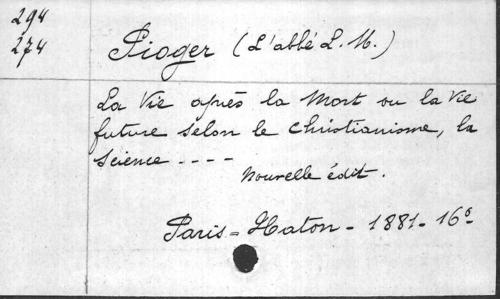 294
274
Pioger (L'abbé L. M.)
La Vie après la Mort ou la Vie
future selon le Christianisme, la
Science ----
Nouvelle édit.
Paris - Haton - 1881 - 16º